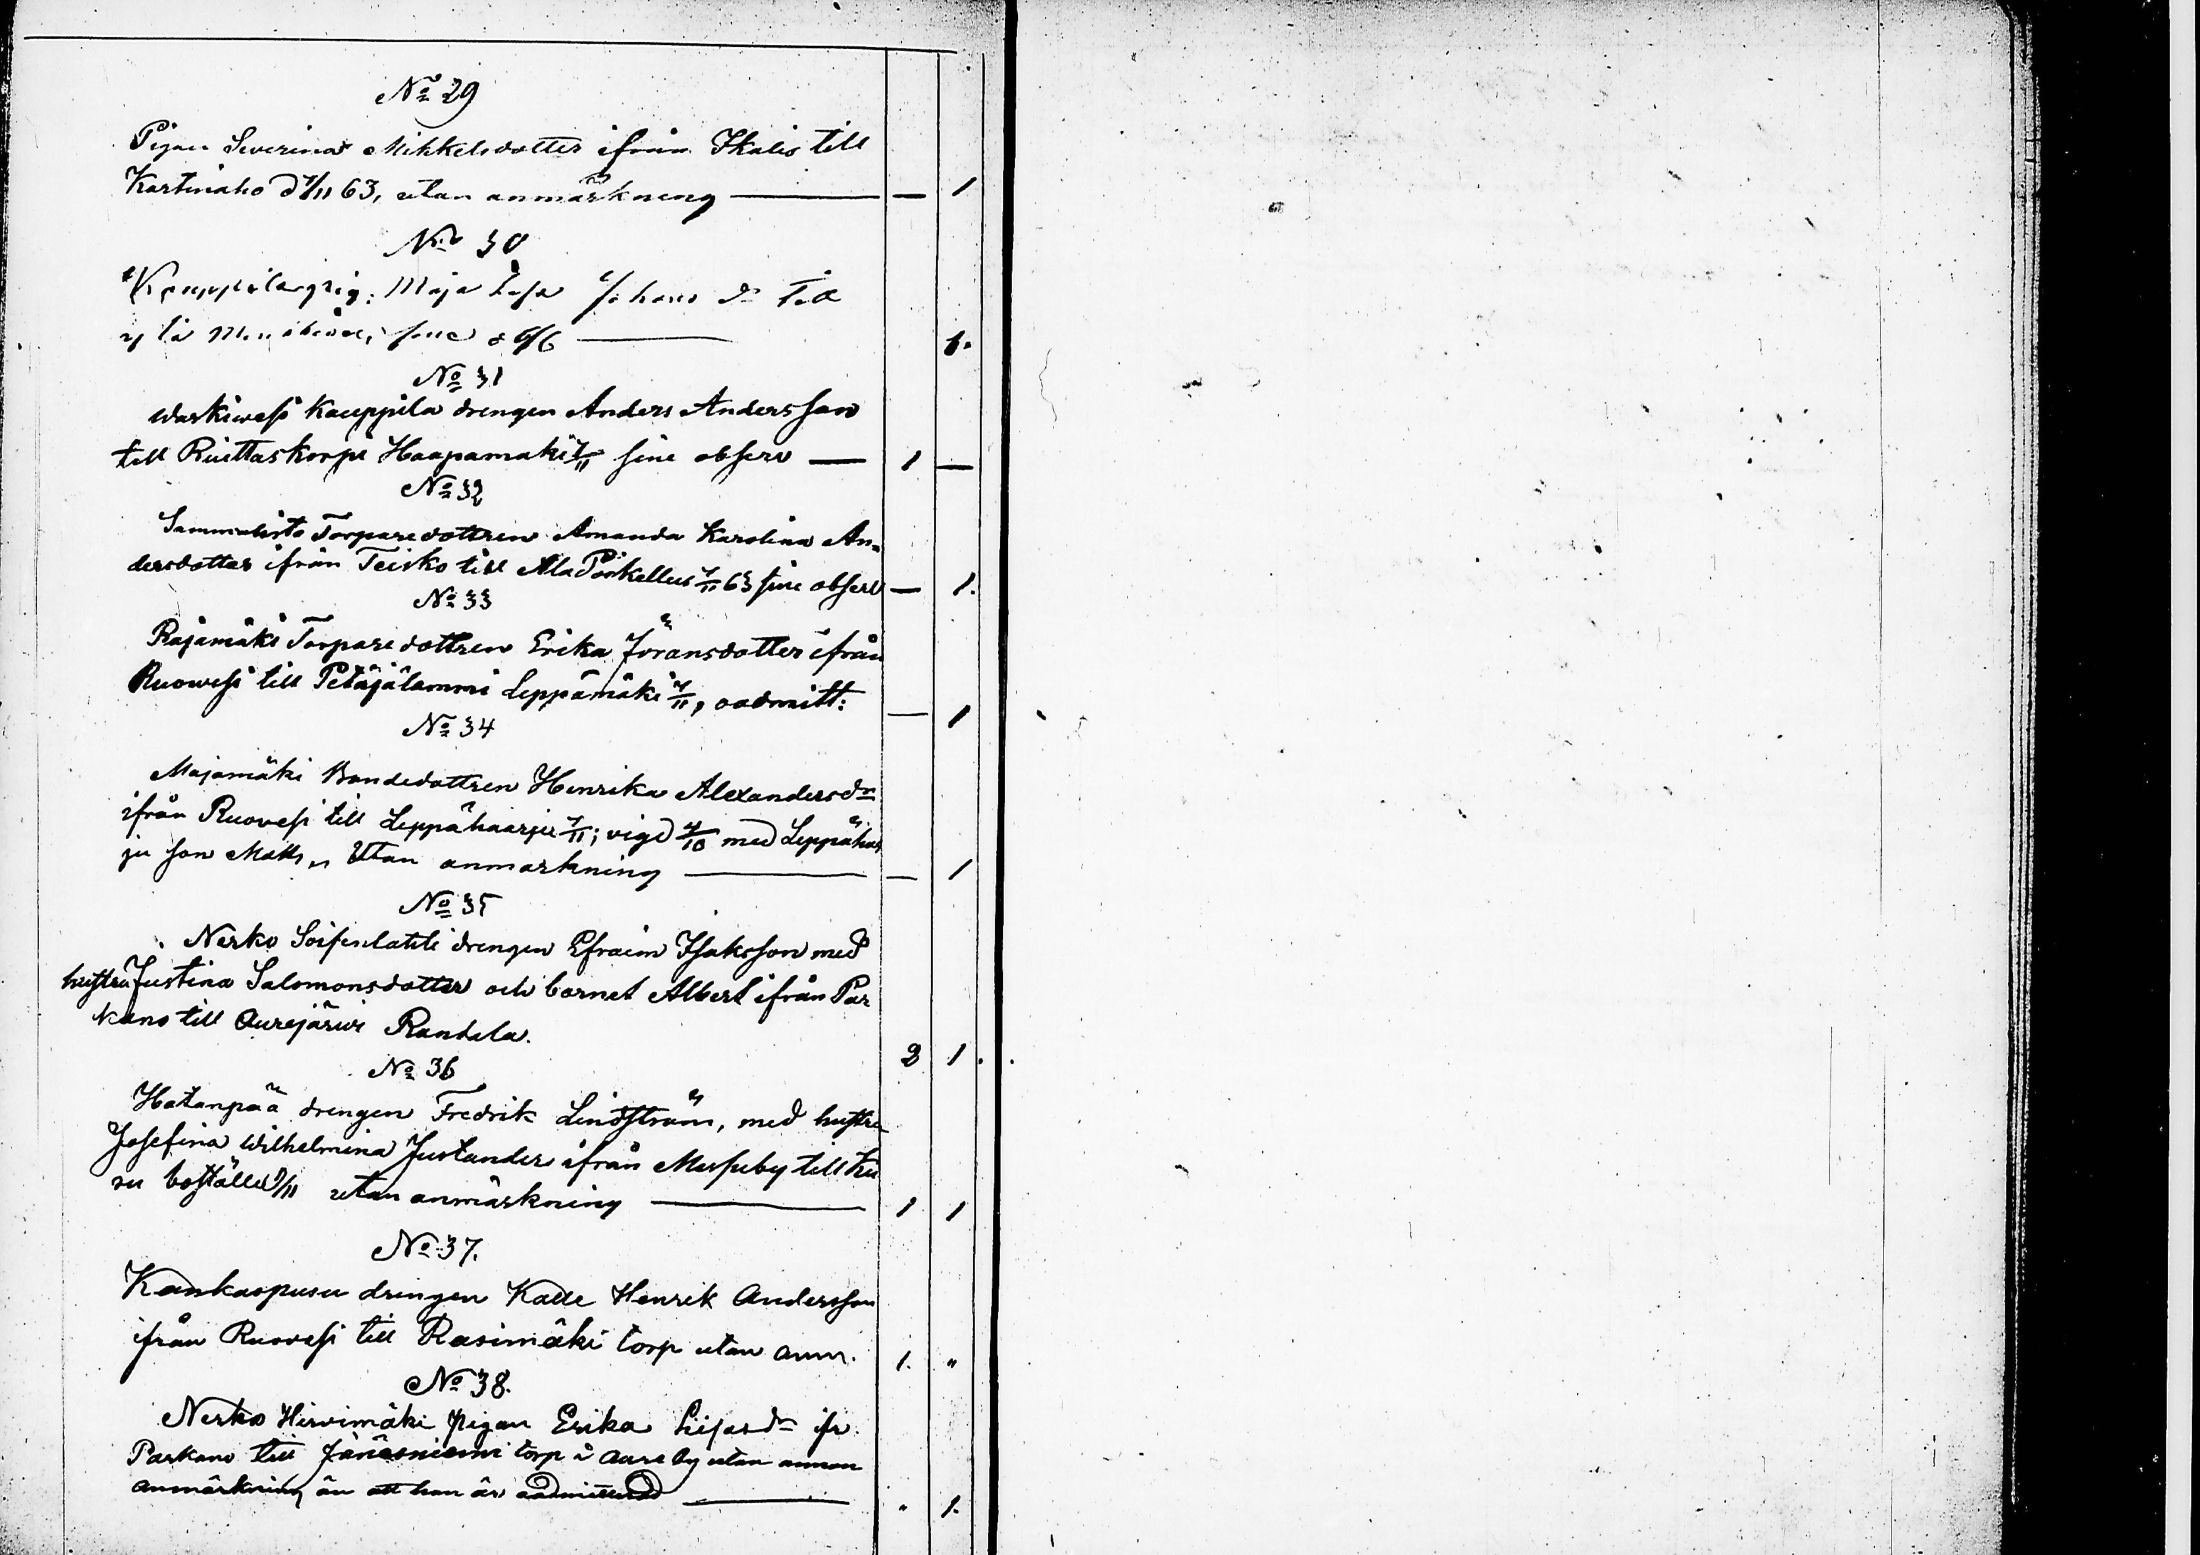 No 29
Pigan Severina Mikkelsdotter ifrån Ikalis till
Kartinaho d 7/11 63, utan anmärkning — — 1
No 30
Maja Johans dr
1.
No 31
Warkiwesi Kauppila drengen Anders Andersson
till Riuttaskorpi Haapamaki 7/11 sine observ — 1 —
No 32
Torparedottren Amanda Karolina An-
dersdotter ifrån Teisko till Ala Poikellus 7/11 63 sine observ — 1.
No 33
Rajamäki Torparedottren Erika Jöransdotter ifrån
Ruowesi till Petäjälammi Leppämäki 7/11, oadmitt: — 1
No 34
Majamäki Bondedottren Henrika Alexandersdr
ifrån Ruovesi till Leppähaarju 7/11; vigd 4/10 med Leppähar
ju son Matts, Utan anmarkning — — 1
No 35
Nerko drengen Efraim Isaksson med
hustru Justina Salomonsdotter och barnet Albert ifrån Par
kano till Aurejärwi Rantala. 2 1.
No 36
Hatanpää drengen Fredrik Lindström, med hustru
Josefina Wilhelmina Justander ifrån Messuby till Ku
ru boställe 9/11 utan anmärkning — 1 1
No 37.
Kankaopusu drengen Kalle Henrik Andersson
ifrån Ruovesi till Rasimäki torp utan anm. 1. "
No 38.
Nerko Hirvimäki pigan Erika dr ifr.
Parkano till Jänesniemi torp i Aure by utan annan
anmärkning än att hon är oadmitterad — " 1.